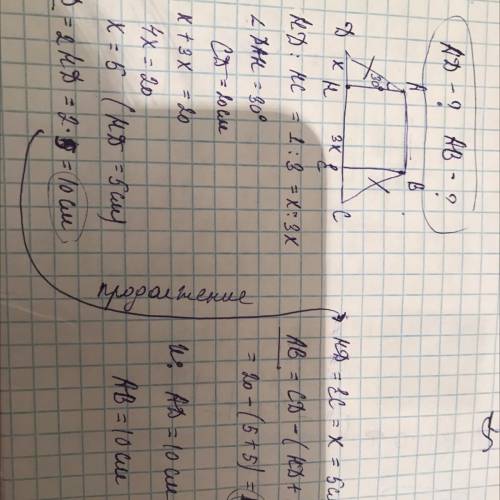 AD - ? AB - ?
A B
D H E C
x 30° 3x
HD : HC = 1 : 3 = x : 3x
∠DAH = 30°
CD = 20 см
x + 3x = 20
4x = 20
x = 5 (HD = 5 см)
= 2HD = 2 · 5 = 10 см
продолжение
HD = EC = x = 5 см
AB = CD - (HD +
= 20 - (5 + 5) =
AD = 10 см
AB = 10 см